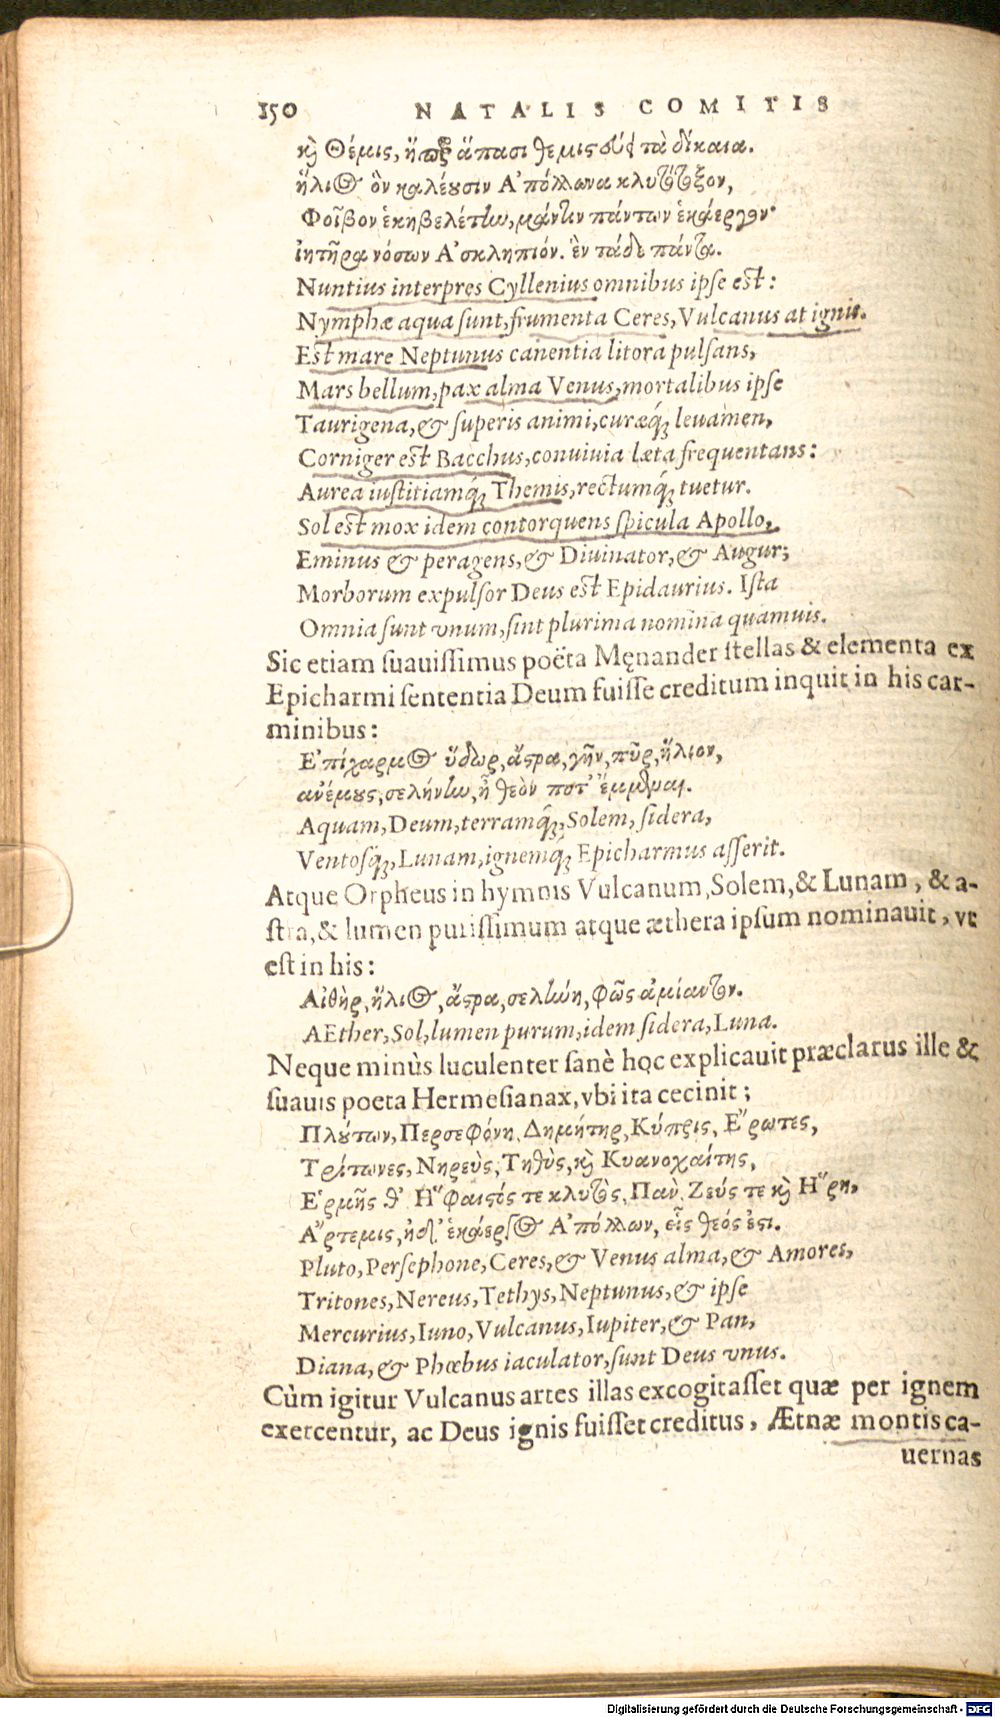 150 NATALIS COMITIS
καὶ Θέμις, ἥπερ ἅπασι θεμιστεύει τὰ δίκαια.
ἥλιος ὃν καλέουσιν Ἀπόλλωνα κλυτότοξον,
Φοῖβον ἑκηβελέτην, μάντιν πάντων ἑκάεργον·
ἰητῆρα νόσων Ἀσκληπιόν. ἓν τάδε πάντα.
Nuntius interpres Cyllenius omnibus ipse est:
Nymphæ aqua sunt, frumenta Ceres, Vulcanus at ignis.
Est mare Neptunus canentia litora pulsans,
Mars bellum, pax alma Venus, mortalibus ipse
Taurigena, & superis animi, curæq́; leuamen,
Corniger est Bacchus, conuiuia læta frequentans:
Aurea iustitiamq́; Themis, rectumq́; tuetur.
Sol est mox idem contorquens spicula Apollo,
Eminus & peragens, & Diuinator, & Augur;
Morborum expulsor Deus est Epidaurius. Ista
Omnia sunt vnum, sint plurima nomina quamuis.
Sic etiam suauissimus poëta Menander stellas & elementa ex
Epicharmi sententia Deum fuisse creditum inquit in his car-
minibus:
Ἐπίχαρμος ὕδωρ, ἄστρα, γῆν, πῦρ, ἥλιον,
ἀνέμους, σελήνην, ἢ θεὸν ποτ'
Aquam, Deum, terramq́;, Solem, sidera,
Ventosq́;, Lunam, ignemq́; Epicharmus asserit.
Atque Orpheus in hymnis Vulcanum, Solem, & Lunam, & a-
stra, & lumen purissimum atque æthera ipsum nominauit, vt
est in his:
Αἰθὴρ, ἥλιος, ἄστρα, σελήνη, φῶς ἀμίαντον.
AEther, Sol, lumen purum, idem sidera, Luna.
Neque minùs luculenter sanè hoc explicauit præclarus ille &
suauis poeta Hermesianax, vbi ita cecinit;
Πλούτων, Περσεφόνη, Δημήτηρ, Κύπρις, Ἔρωτες,
Τρίτωνες, Νηρεὺς, Τηθὺς, καὶ Κυανοχαίτης,
Ἑρμῆς θ' Ἥφαιστός τε κλυτὸς, Πὰν, Ζεύς τε καὶ Ἥρη,
Ἄρτεμις, ἠδ' ἑκάεργος Ἀπόλλων, εἷς θεός ἐστι.
Pluto, Persephone, Ceres, & Venus alma, & Amores,
Tritones, Nereus, Tethys, Neptunus, & ipse
Mercurius, Iuno, Vulcanus, Iupiter, & Pan,
Diana, & Phœbus iaculator, sunt Deus vnus.
Cùm igitur Vulcanus artes illas excogitasset quæ per ignem
exercentur, ac Deus ignis fuisset creditus, Ætnæ montis ca-
uernas
Digitalisierung gefördert durch die Deutsche Forschungsgemeinschaft - DFG